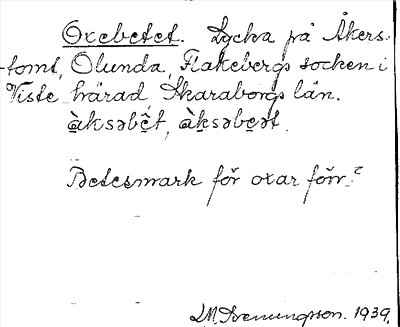 Oxebetet. Lycka på Åkers-
tomt, Ölunda, Flakebergs socken i
Viste härad, Skaraborgs län.
àksəbe̬t, àksəbe̬ət.
Betesmark för oxar förr.
1939.